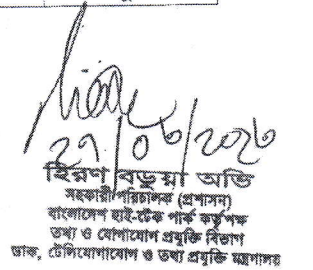 ২৭/০৮/২০২৩
হিরণ বড়ুয়া অভি
সহকারী পরিচালক (প্রশাসন)
বাংলাদেশ হাই-টেক পার্ক কর্তৃপক্ষ
তথ্য ও যোগাযোগ প্রযুক্তি বিভাগ
ডাক, টেলিযোগাযোগ ও তথ্য প্রযুক্তি মন্ত্রণালয়